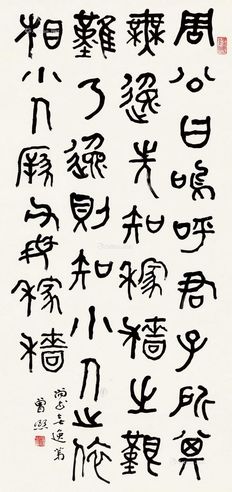 周公曰嗚呼君子所其
無逸先知稼穡之艱
難乃逸則知小人之依
相小人厥父母稼穡
尚書無逸
曾熙